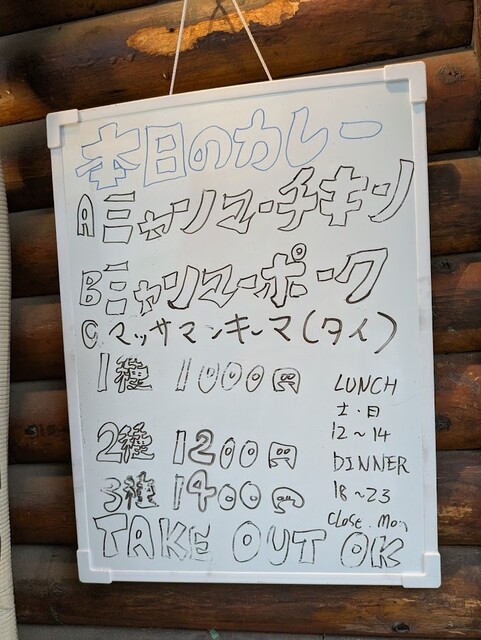 本日のカレー
Aミャンマーチキン
Bミャンマーポーク
Cマッサマンキーマ(タイ)
1種 1000円
2種 1200円
3種 1400円
LUNCH
土・日
12〜14
DINNER
18〜23
Close. Mon
TAKE OUT OK